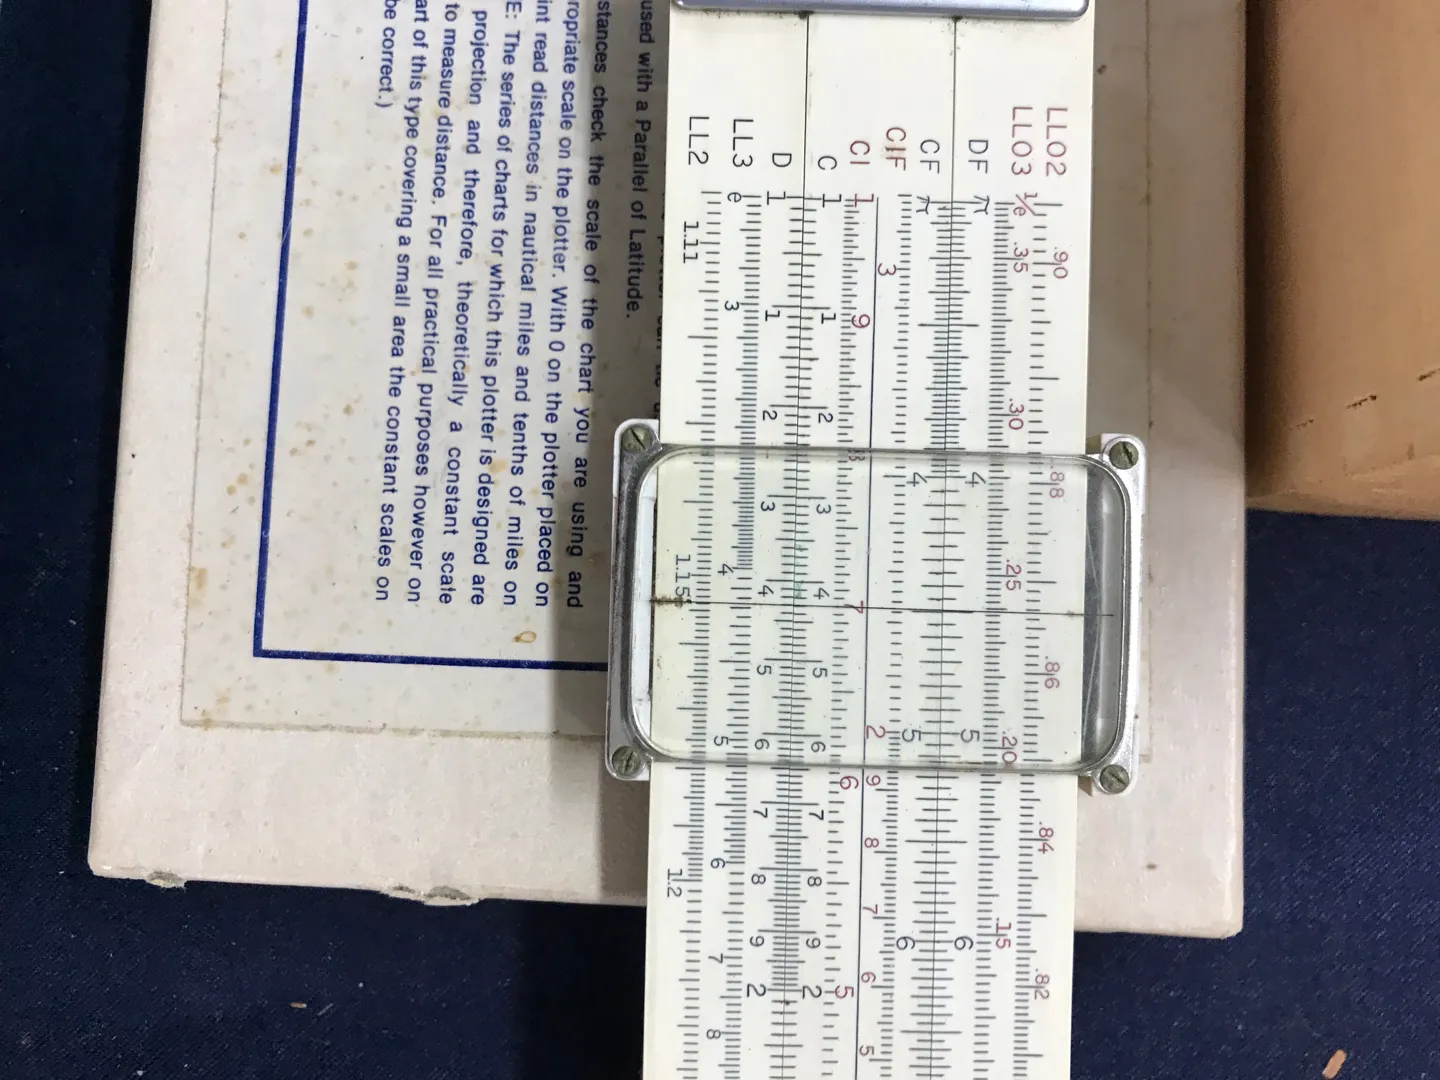 used with a Parallel of Latitude.
stances check the scale of the chart you are using and
ropriate scale on the plotter. With 0 on the plotter placed on
int read distances in nautical miles and tenths of miles on
E: The series of charts for which this plotter is designed are
projection and therefore, theoretically a constant scale
to measure distance. For all practical purposes however on
art of this type covering a small area the constant scales on
be correct.)
LL02 .90 .88 .86 .84 .82
LL03 1/e .35 .30 .25 .20 .15
DF π 4 5 6
CF π 4 5 6
CIF 3 2 9 8 7 6 5
CI 1 9 8 7 6 5
C 1 1 2 3 4 5 6 7 8 9 2
D 1 1 2 3 4 5 6 7 8 9 2
LL3 e 3 4 5 6 7 8
LL2 1.11 1.15 1.2